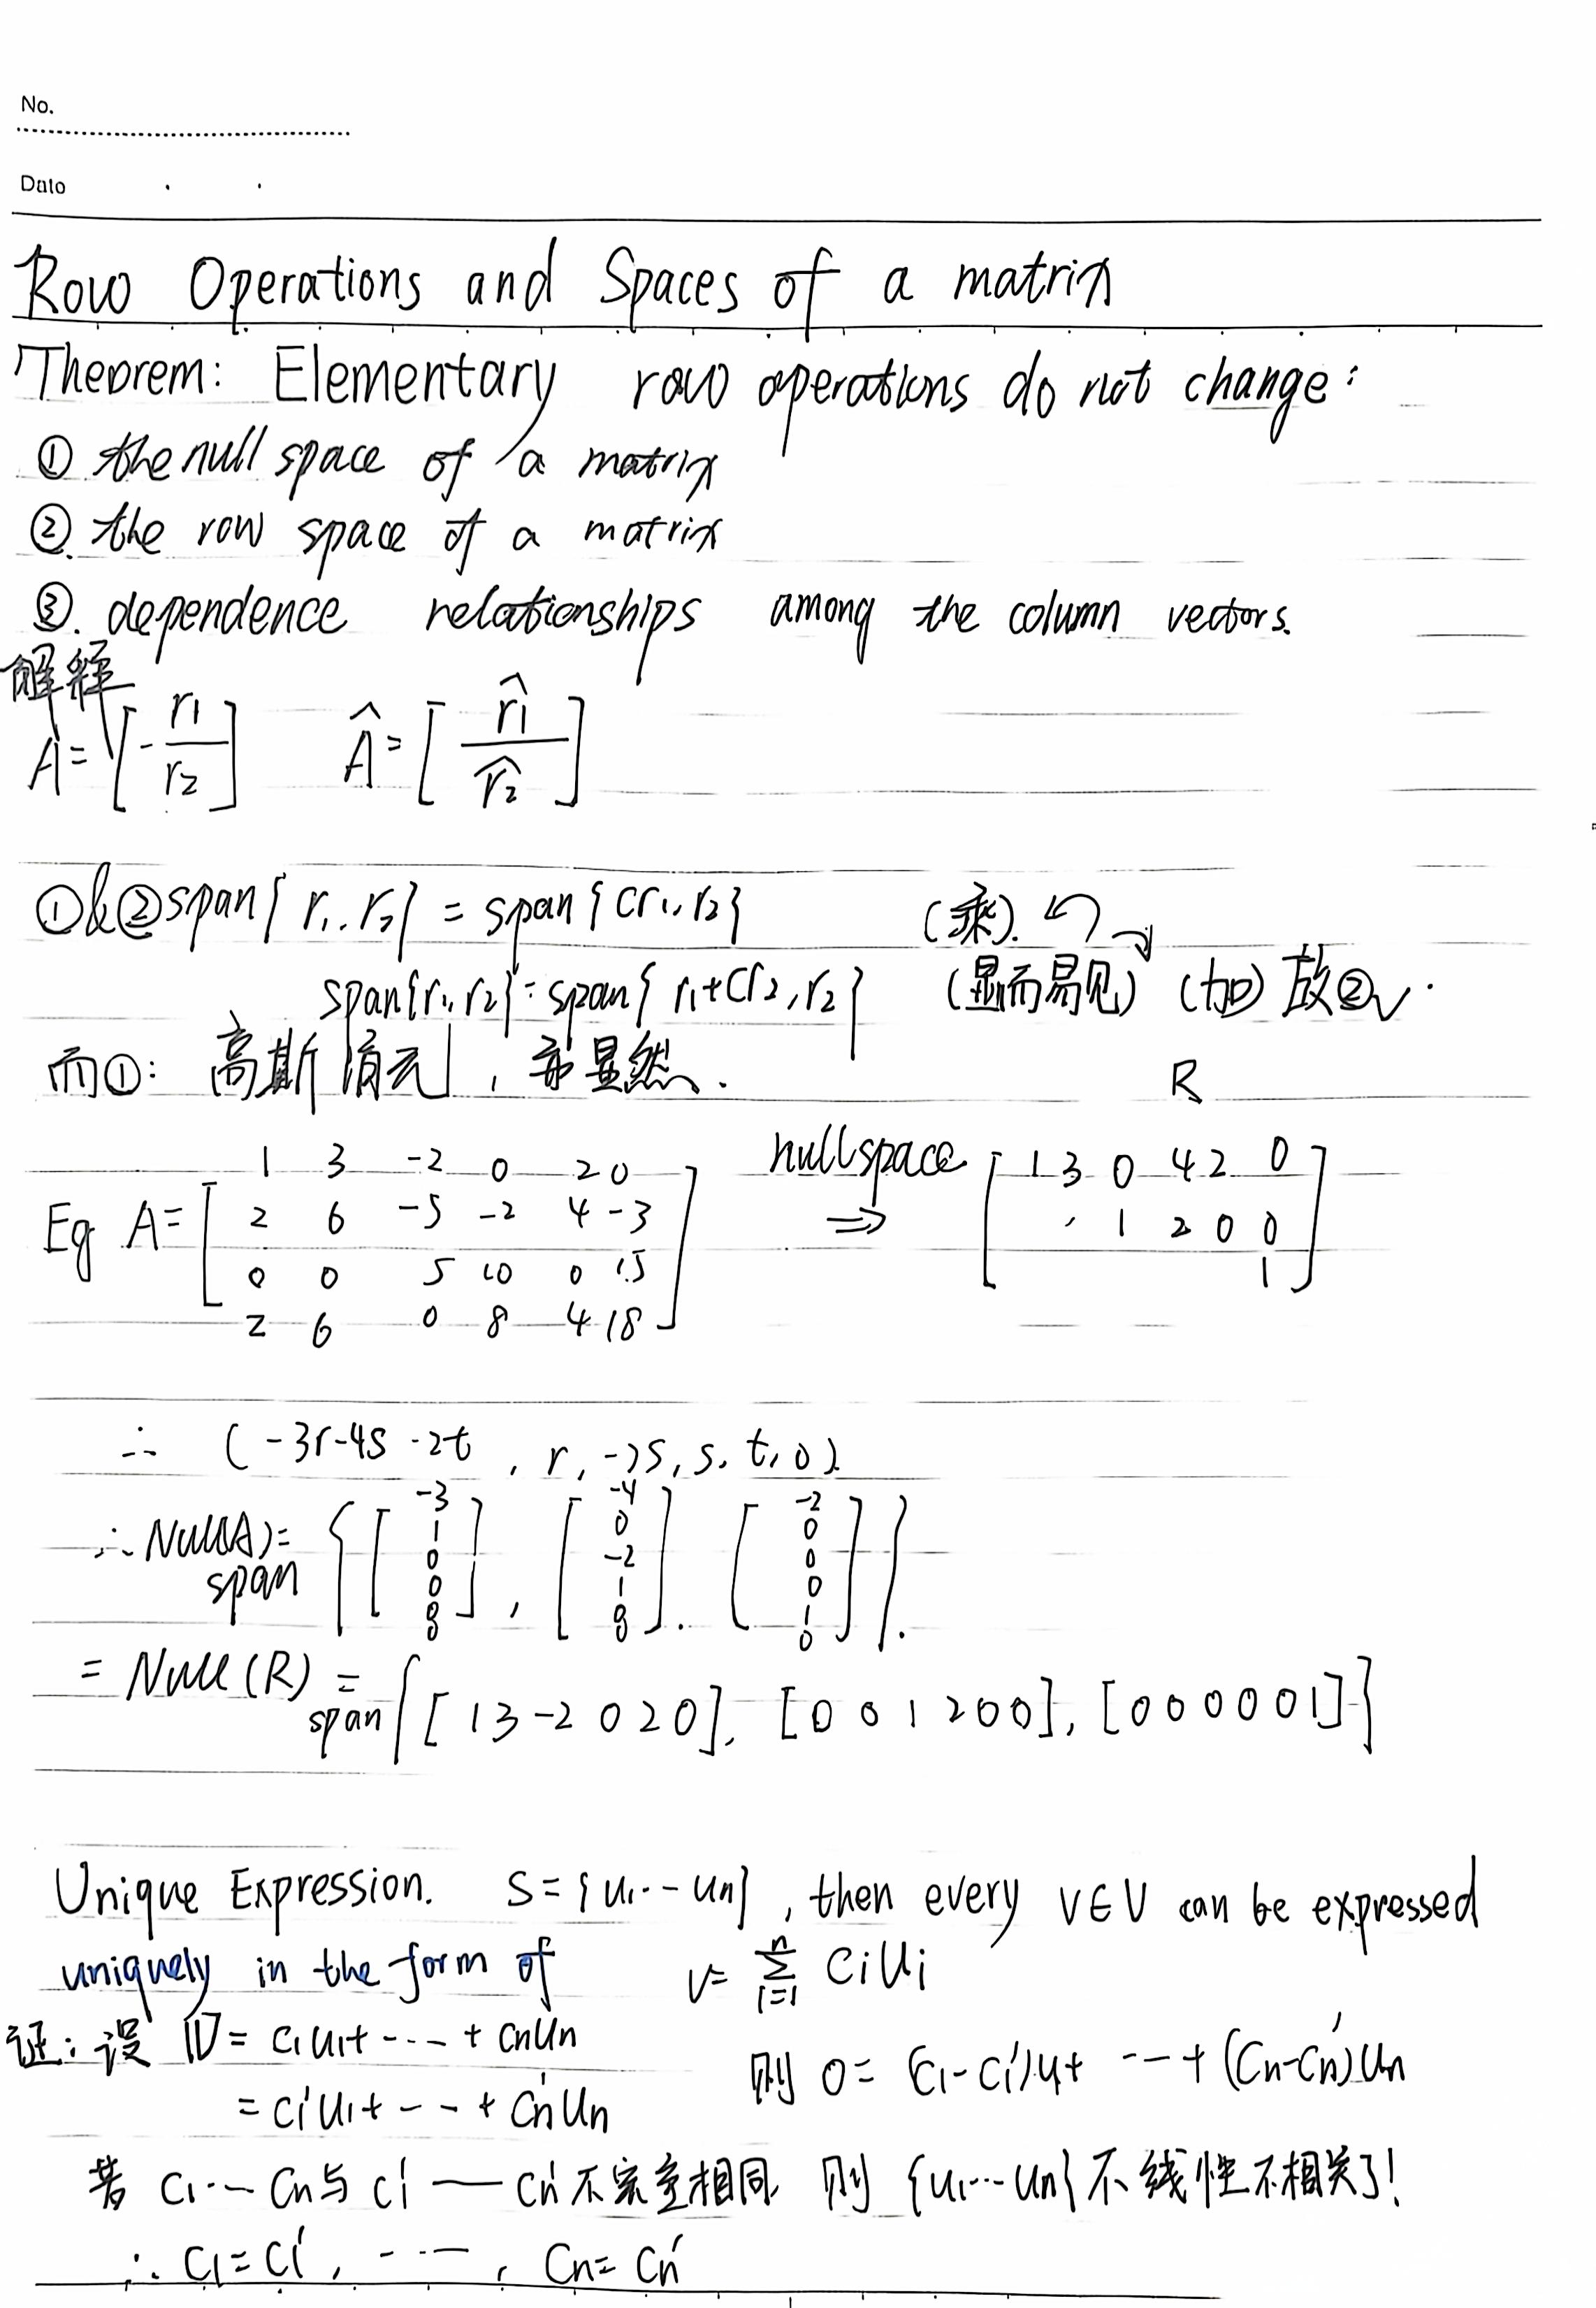 No.
Date
Row Operations and Spaces of a matrix
Theorem: Elementary row operations do not change:
① the null space of a matrix
② the row space of a matrix
③. dependence relationships among the column vectors.
解释
A = [ r1 / r2 ]  Â = [ r̂1 / r̂2 ]
①&② span{ r1, r2} = span{ cr1, r2} (乘).
span{r1, r2} = span{ r1+cr2, r2} (显而易见) (加) 故②✓.
而①: 高斯消元, 亦显然.
R
1 3 -2 0 2 0 nullspace 1 3 0 4 2 0
Eg A = 2 6 -5 -2 4 -3 ⇒ 1 2 0 0
0 0 5 10 0 15 1
2 6 0 8 4 18
∴ (-3r-4s-2t, r, -2s, s, t, 0)
∴ Null(A) = span { [-3 1 0 0 0 0], [-4 0 -2 1 0 0], [-2 0 0 0 1 0] }.
= Null(R) = span { [1 3 -2 0 2 0], [0 0 1 2 0 0], [0 0 0 0 0 1] }
Unique Expression. S = {u1 ... un}, then every v∈V can be expressed
uniquely in the form of v = Σ_{i=1}^{n} ci ui
证: 设 V = c1u1 + ---- + cnun
= c1'u1 + --- + cn'un 则 0 = (c1-c1')u1 + --- + (cn-cn')un
若 c1 ... cn 与 c1' — cn' 不完全相同, 则 {u1 ... un} 不线性不相关了!
∴ c1 = c1', ----, cn = cn'